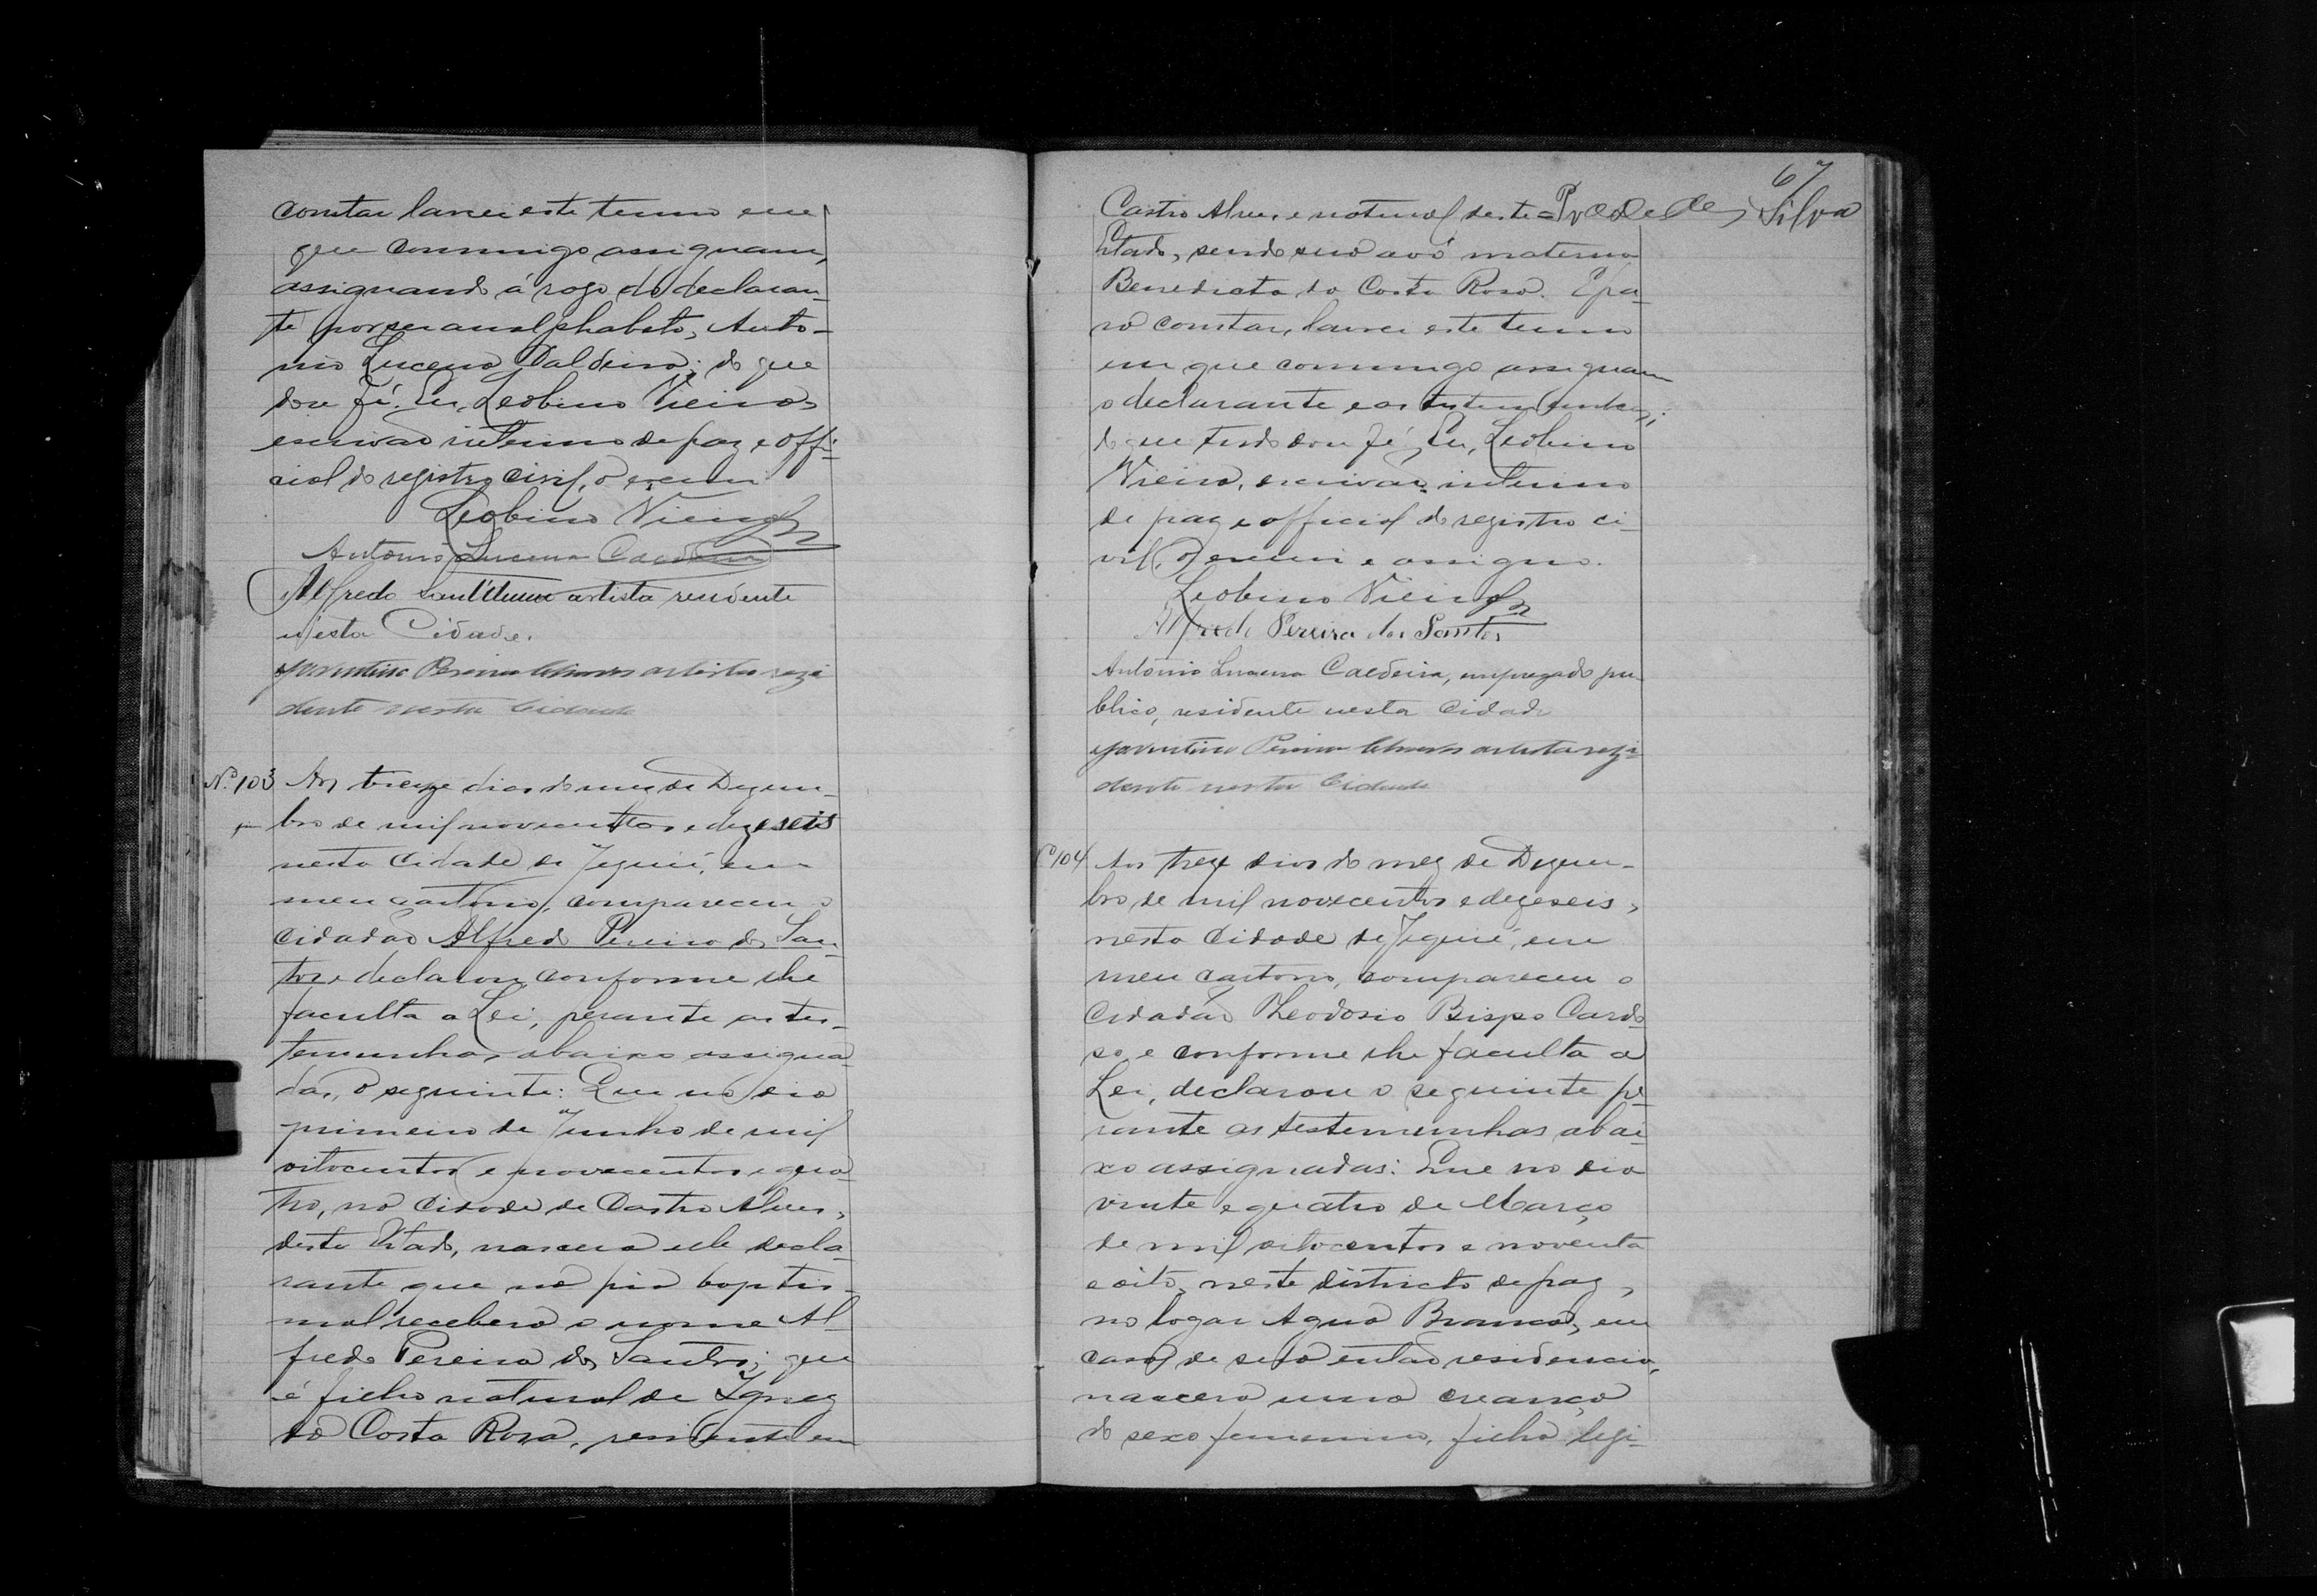 constar lancei este termo em
que commigo assignam,
assignando á rogo do declaran-
te por ser analphabeto, Anto-
nio Lucena Caldeira; do que
dou fé. Eu, Leobino Vieira,
escrivão interino de paz e offi-
cial do registro civil, o escrevi
Leobino Vieira
Antonio Lucena Caldeira
Alfredo artista residente
n'esta Cidade.
Juventino Pereira artista rezi
dente nesta Cidade
Nº 103 Aos treze dias do mez de Dezem-
bro de mil novecentos e dezeseis
nesta Cidade de Jequié, em
meu cartorio, compareceu o
cidadão Alfredo Pereira dos San-
tos e declarou, conforme lhe
faculta a Lei, perante as tes-
temunhas abaixo assigna-
das, o seguinte: Que no dia
primeiro de Junho de mil
oitocentos e novecentos e qua-
tro, na Cidade de Castro Alves,
deste Estado, nascera elle decla-
rante que na pia baptis-
mal recebera o nome Al-
fredo Pereira dos Santos; que
é filho natural de Ignez
da Costa Rosa, residente em
67
Castro Alves, e natural deste Silva
Estado, sendo sua avó materna
Benedicta da Costa Rosa. E pa-
ra constar, lancei este termo
em que commigo assignam
o declarante e as testemunhas;
do que tudo dou fé. Eu, Leobino
Vieira, escrivão interino
de paz e official do registro ci-
vil, o escrevi e assigno.
Leobino Vieira
Alfredo Pereira dos Santos
Antonio Lucena Caldeira, empregado pu-
blico, residente nesta Cidade
Juventino Pereira artista rezi-
dente nesta Cidade
Nº 104 Aos treze dias do mez de Dezem-
bro de mil novecentos e dezeseis,
nesta Cidade de Jequié, em
meu cartorio, compareceu o
Cidadão Theodosio Bispo Cardo-
so, e conforme lhe faculta a
Lei, declarou o seguinte pe-
rante as testemunhas abai-
xo assignadas: Que no dia
vinte e quatro de Março
de mil oitocentos e noventa
e oito, neste districto de paz,
no logar Agua Branca, em
casa de sua então residencia,
nascera uma creança
do sexo femenino, filha legi-